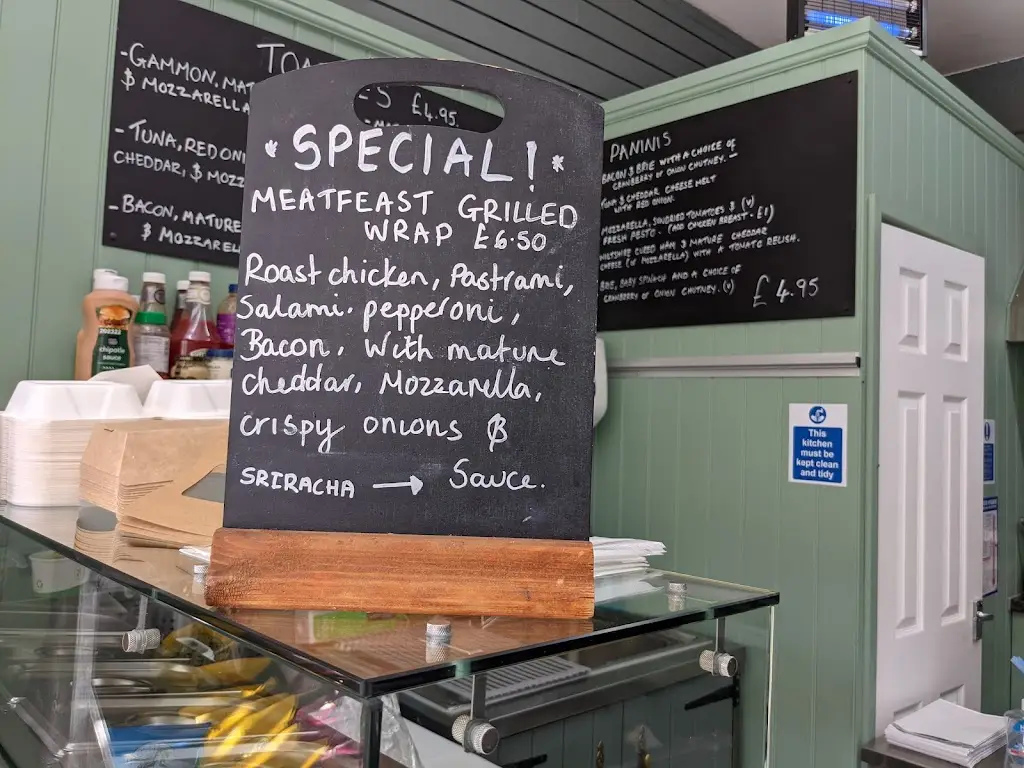 TOA
-GAMMON, MAT
$ MOZZARELLA
-TUNA, RED ONI
CHEDDAR, $ MOZZ
-BACON, MATURE
$ MOZZAREL
-S £4.95.
* SPECIAL! *
MEATFEAST GRILLED
WRAP £6.50
Roast chicken, Pastrami,
Salami. pepperoni,
Bacon. With mature
cheddar, Mozzarella,
crispy onions &
SRIRACHA → Sauce.
PANINIS
BACON $ BRIE WITH A CHOICE OF
CRANBERRY OF ONION CHUTNEY.
TUNA $ CHEDDAR CHEESE MELT
WITH RED ONION.
MOZZARELLA, SUNDRIED TOMATOES $ (V)
FRESH PESTO. (ADD CHICKEN BREAST - £1)
WILTSHIRE CURED HAM $ MATURE CHEDDAR
CHEESE (or MOZZARELLA) WITH A TOMATO RELISH.
BRIE, BABY SPINACH AND A CHOICE OF
CRANBERRY OF ONION CHUTNEY. (V)
£4.95
chipotle
sauce
This
kitchen
must be
kept clean
and tidy